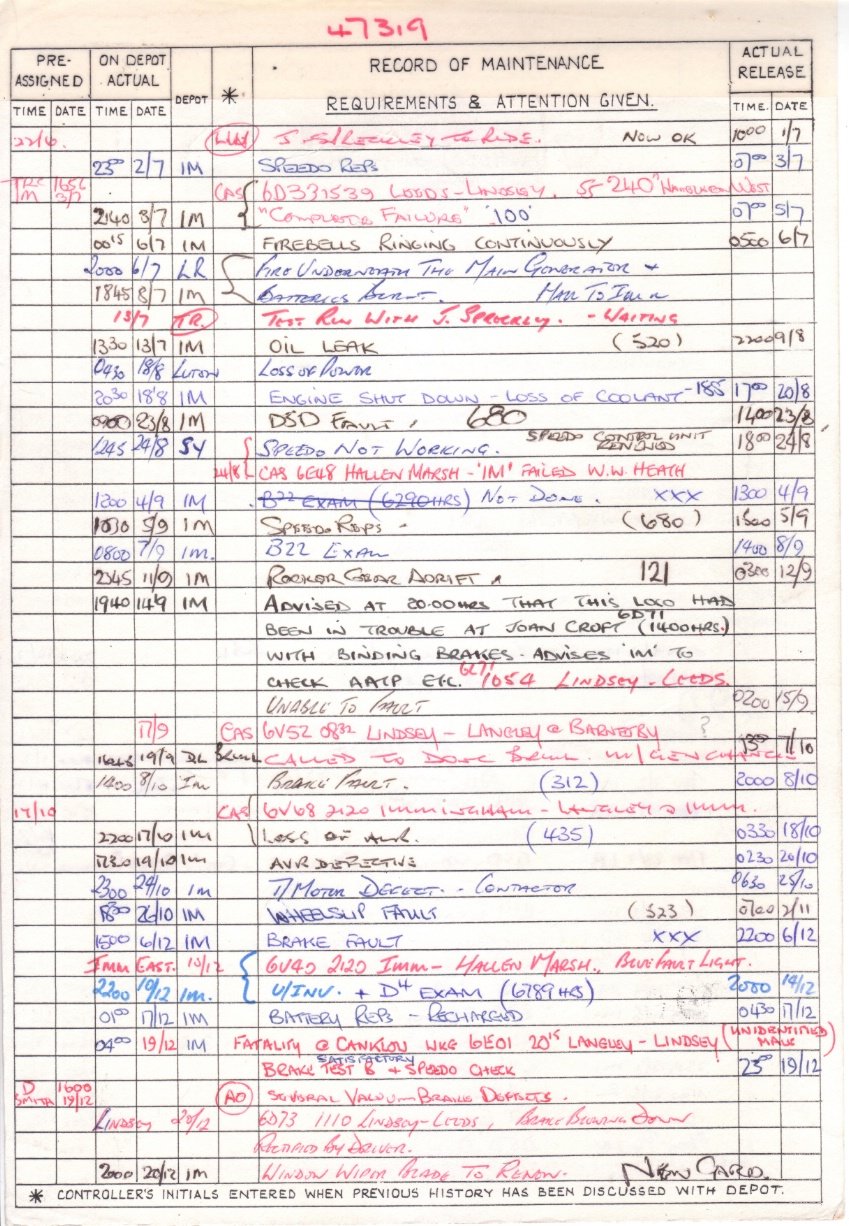 47319
PRE-ASSIGNED ON DEPOT ACTUAL DEPOT * RECORD OF MAINTENANCE REQUIREMENTS & ATTENTION GIVEN. ACTUAL RELEASE
TIME DATE TIME DATE TIME. DATE
22/6. TO RIDE. NOW OK 1000 1/7
23⁰⁰ 2/7 IM SPEEDO REPS 07⁰⁰ 3/7
IM 3/7 CAS 6D33 1539 LEEDS-LINDSEY. 240 WEST
2140 3/7 IM "COMPLETE FAILURE" '100' 07⁰⁰ 5/7
00¹⁵ 6/7 IM FIREBELLS RINGING CONTINUOUSLY 0500 6/7
2000 6/7 LR FIRE UNDERNEATH THE MAIN GENERATOR +
1845 8/7 IM BATTERIES BURNT.
13/7 TR. TEST RUN WITH J. SPRECKLEY. - WAITING
1330 13/7 IM OIL LEAK (520) 2200 9/8
0430 18/8 LUTON LOSS OF POWER
2030 18/8 IM ENGINE SHUT DOWN - LOSS OF COOLANT -185 17⁰⁰ 20/8
0900 23/8 IM DSD FAULT. 680 1400 23/8
1245 24/8 SY SPEEDO NOT WORKING. SPEEDO CONTROL UNIT RENEWED 1800 24/8
24/8 CAS 6E48 HALLEN MARSH - 'IM' FAILED W.W. HEATH
1200 4/9 IM B22 EXAM (6290HRS) NOT DONE. XXX 1300 4/9
1030 5/9 IM SPEEDO REPS - (680) 1500 5/9
0800 7/9 IM. B22 EXAM 1400 8/9
2345 11/9 IM ROCKER GEAR ADRIFT. 121 0300 12/9
1940 14/9 IM ADVISED AT 20.00HRS THAT THIS LOCO HAD
BEEN IN TROUBLE AT JOAN CROFT 6D71 (1400HRS.)
WITH BINDING BRAKES. ADVISES 'IM' TO
CHECK AATP ETC. 6L71 1054 LINDSEY - LEEDS.
UNABLE TO FAULT 0200 15/9
17/9 CAS 6V52 08³² LINDSEY - LANGLEY @ BARNETBY ?
19/9 CALLED TO DONC 7/10
1400 8/10 IM BRAKE FAULT. (312) 2000 8/10
17/10 CAS 6V68 2120 IMMINGHAM - LANGLEY @ IMM.
2200 17/10 IM LOSS OF AIR. (435) 0330 18/10
1730 19/10 IM AVR DEFECTIVE 0230 20/10
2300 24/10 IM T/MOTOR DEFECT. - CONTACTOR 0630 25/10
1800 26/10 IM WHEELSLIP FAULT (523) 0700 2/11
1500 6/12 IM BRAKE FAULT XXX 2200 6/12
IMM EAST. 10/12 6V40 2120 IMM - HALLEN MARSH. BLUE FAULT LIGHT.
2200 10/12 IM. U/INV. + D4 EXAM (6789 HRS) 2000 14/12
01⁰⁰ 17/12 IM BATTERY REPS - RECHARGED 0430 17/12
04⁰⁰ 19/12 IM FATALITY @ CANKLOW WKG 6E01 20¹⁵ LANGLEY - LINDSEY (UNIDENTIFIED MALE)
BRAKE TEST B SATISFACTORY & SPEEDO CHECK 23⁰⁰ 19/12
D SMITH 1600 19/12 AD SEVERAL VACUUM BRAKE DEFECTS.
LINDSEY 20/12 6D73 1110 LINDSEY-LEEDS, BRAKE BLOWING DOWN
RECTIFIED BY DRIVER.
2000 20/12 IM WINDOW WIPER BLADE TO RENEW. NEW CARD.
* CONTROLLER'S INITIALS ENTERED WHEN PREVIOUS HISTORY HAS BEEN DISCUSSED WITH DEPOT.